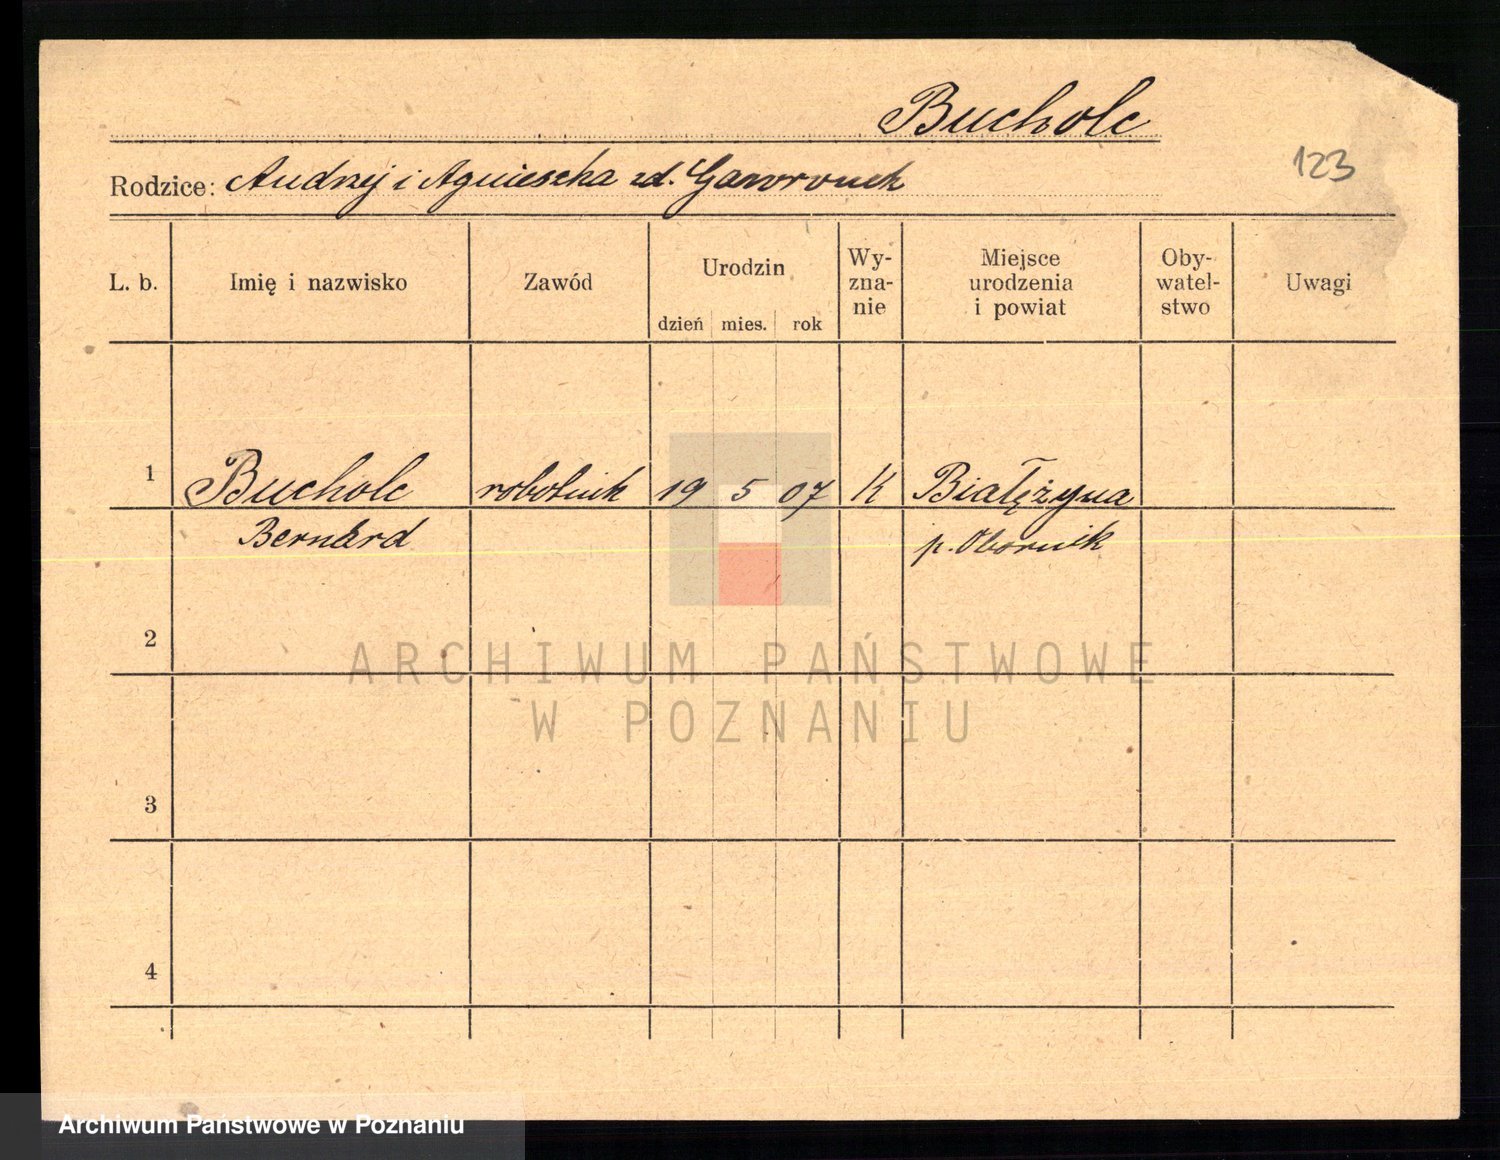 Bucholc
123
Rodzice: Andrzej i Agnieszka zd. Gawronek
L. b. Imię i nazwisko Zawód Urodzin dzień mies. rok Wy-zna-nie Miejsce urodzenia i powiat Oby-watel-stwo Uwagi
1 Bucholc robotnik 19 5 07 K Białężyna
Bernard p. Obornik
2
ARCHIWUM PAŃSTWOWE
W POZNANIU
3
4
Archiwum Państwowe w Poznaniu